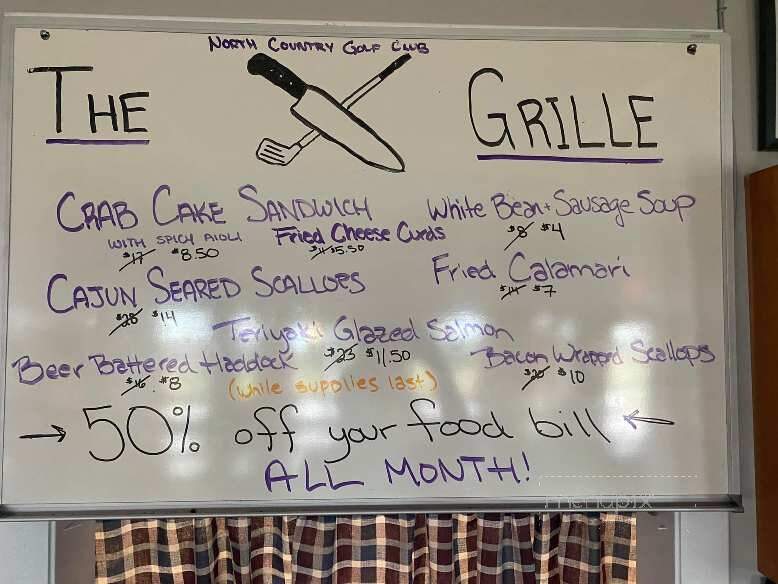 North Country Golf Club
The Grille
Crab Cake Sandwich
with spicy aioli
$17 $8.50
White Bean + Sausage Soup
$8 $4
Fried Cheese Curds
$11 $5.50
Cajun Seared Scallops
$28 $14
Fried Calamari
$14 $7
Teriyaki Glazed Salmon
$23 $11.50
Beer Battered Haddock
$16 $8
(while supplies last)
Bacon Wrapped Scallops
$20 $10
→ 50% off your food bill ←
ALL MONTH!
menupix